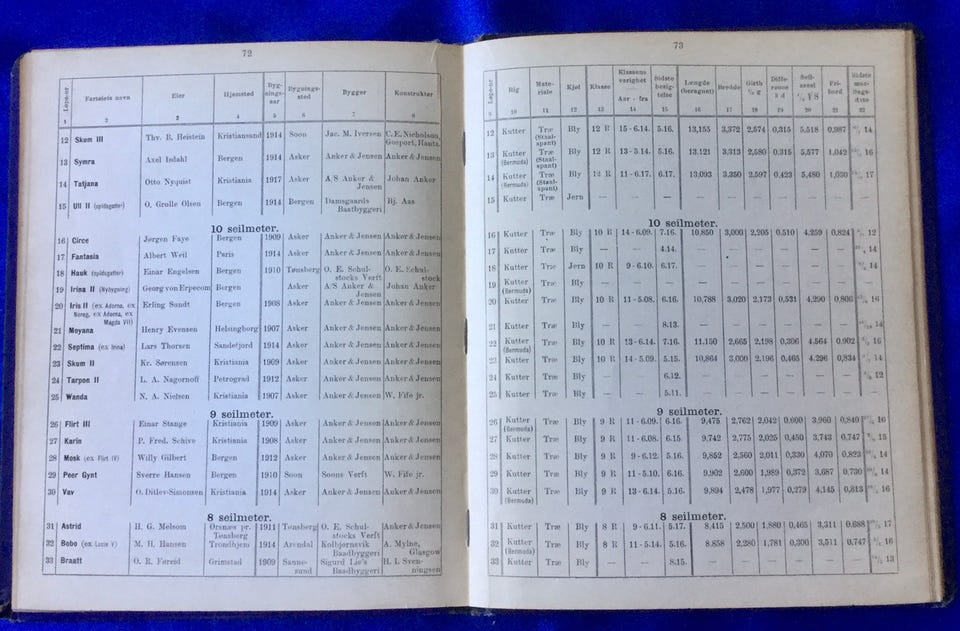 72
Løpe-nr Fartøiets navn Eier Hjemsted Byg-nings-aar Bygnings-sted Bygger Konstruktør
1 2 3 4 5 6 7 8
12 Skum III Thv. B. Heistein Kristiansand 1914 Soon Jac. M. Iversen C. E. Nicholson, Gosport, Hants.
13 Symra Axel Indahl Bergen 1914 Asker Anker & Jensen Anker & Jensen
14 Tatjana Otto Nyquist Kristiania 1917 Asker A/S Anker & Jensen Johan Anker
15 Ull II (spidsgatter) O. Grolle Olsen Bergen 1914 Bergen Damsgaards Baatbyggeri Bj. Aas
10 seilmeter.
16 Circe Jørgen Faye Bergen 1909 Asker Anker & Jensen Anker & Jensen
17 Fantasia Albert Weil Paris 1914 Asker Anker & Jensen Anker & Jensen
18 Hauk (spidsgatter) Einar Engelsen Bergen 1910 Tønsberg O. E. Schul-stocks Verft O. E. Schul-stock
19 Irina II (Nybygning) Georg von Erpecom Bergen Asker A/S Anker & Jensen Johan Anker
20 Iris II (ex Adorna, ex Noreg, ex Adorna, ex Magda VII) Erling Sandt Bergen 1908 Asker Anker & Jensen Anker & Jensen
21 Moyana Henry Evensen Helsingborg 1907 Asker Anker & Jensen Anker & Jensen
22 Septima (ex Irina) Lars Thorsen Sandefjord 1914 Asker Anker & Jensen Anker & Jensen
23 Skum II Kr. Sørensen Kristiania 1909 Asker Anker & Jensen Anker & Jensen
24 Tarpon II L. A. Nagornoff Petrograd 1912 Asker Anker & Jensen Anker & Jensen
25 Wanda N. A. Nielsen Kristiania 1907 Asker Anker & Jensen W. Fife jr.
9 seilmeter.
26 Flirt III Einar Stange Kristiania 1909 Asker Anker & Jensen Anker & Jensen
27 Karin P. Fred. Schive Kristiania 1908 Asker Anker & Jensen Anker & Jensen
28 Mosk (ex Flirt IV) Willy Gilbert Bergen 1912 Asker Anker & Jensen Anker & Jensen
29 Peer Gynt Sverre Hansen Bergen 1910 Soon Soons Verft W. Fife jr.
30 Vav O. Ditlev-Simonsen Kristiania 1914 Asker Anker & Jensen Anker & Jensen
8 seilmeter.
31 Astrid H. G. Melsom Ørsnæs pr. Tønsberg 1911 Tønsberg O. E. Schul-stocks Verft Anker & Jensen
32 Bobo (ex Lucie V) M. H. Hansen Trondhjem 1914 Arendal Kolbjørnsvik Baadbyggeri A. Mylne, Glasgow
33 Braatt O. R. Føreid Grimstad 1909 Sanne-sund Sigurd Lie's Baadbyggeri H. I. Sven-ningsen
73
Løpe-nr Rig Mate-riale Kjøl Klasse Klassens varighet Aar - fra Sidste besig-telse Længde (beregnet) Bredde Girth ½ g Diffe-rence 3 d Seil-areal Fri-bord Sidste maa-lings-dato
9 10 11 12 13 14 15 16 17 18 19 20 21 22
12 Kutter Træ (Staal-spant) Bly 12 R 15 - 6.14. 5.16. 13,155 3,372 2,574 0,315 5,518 0,987 14
13 Kutter (Bermuda) Træ (Staal-spant) Bly 12 R 13 - 5.14. 5.16. 13.121 3,313 2,580 0,315 5,577 1,042 16
14 Kutter (Bermuda) Træ (Staal-spant) Bly 12 R 11 - 6.17. 6.17. 13,093 3,350 2,597 0,423 5,480 1,030 17
15 Kutter Træ Jern — — — — — — — — — —
10 seilmeter.
16 Kutter Træ Bly 10 R 14 - 6.09. 7.16. 10,850 3,000 2,205 0,510 4.259 0,824 12
17 Kutter Træ Bly — — 4.14. — — — — — — 14
18 Kutter Træ Jern 10 R 9 - 6.10. 6.17. — — — — — — 14
19 Kutter (Bermuda) Træ Bly — — — — — — — — — —
20 Kutter Træ Bly 10 R 11 - 5.08. 6.16. 10,788 3,020 2,173 0,531 4,290 0,806 16
21 Kutter Træ Bly — — 8.13. — — — — — — 14
22 Kutter (Bermuda) Træ Bly 10 R 13 - 6.14. 7.16. 11.150 2,665 2,198 0,306 4.564 0,902 16
23 Kutter Træ Bly 10 R 14 - 5.09. 5.15. 10,864 3,000 2,196 0,465 4.296 0,834 14
24 Kutter Træ Bly — — 6.12. — — — — — — 12
25 Kutter Træ Bly — — 5.11. — — — — — — —
9 seilmeter.
26 Kutter (Bermuda) Træ Bly 9 R 11 - 6.09. 6.16. 9,475 2,762 2,042 0,600 3,960 0,840 16
27 Kutter Træ Bly 9 R 11 - 6.08. 6.15. 9,742 2,775 2,025 0,450 3,743 0.747 15
28 Kutter Træ Bly 9 R 9 - 6.12. 5.16. 9,852 2,560 2,011 0,330 4,070 0,823 14
29 Kutter Træ Bly 9 R 11 - 5.10. 6.16. 9.902 2,600 1,989 0,372 3,687 0.730 14
30 Kutter (Bermuda) Træ Bly 9 R 13 - 6.14. 5.16. 9,894 2,478 1,977 0,279 4,145 0,813 16
8 seilmeter.
31 Kutter Træ Bly 8 R 9 - 6.11. 5.17. 8,415 2,500 1,880 0,465 3,311 0.688 17
32 Kutter (Bermuda) Træ Bly 8 R 11 - 5.14. 5.16. 8.858 2,280 1,781 0,300 3,511 0.747 16
33 Kutter Træ Bly — — 8.15. — — — — — — 13